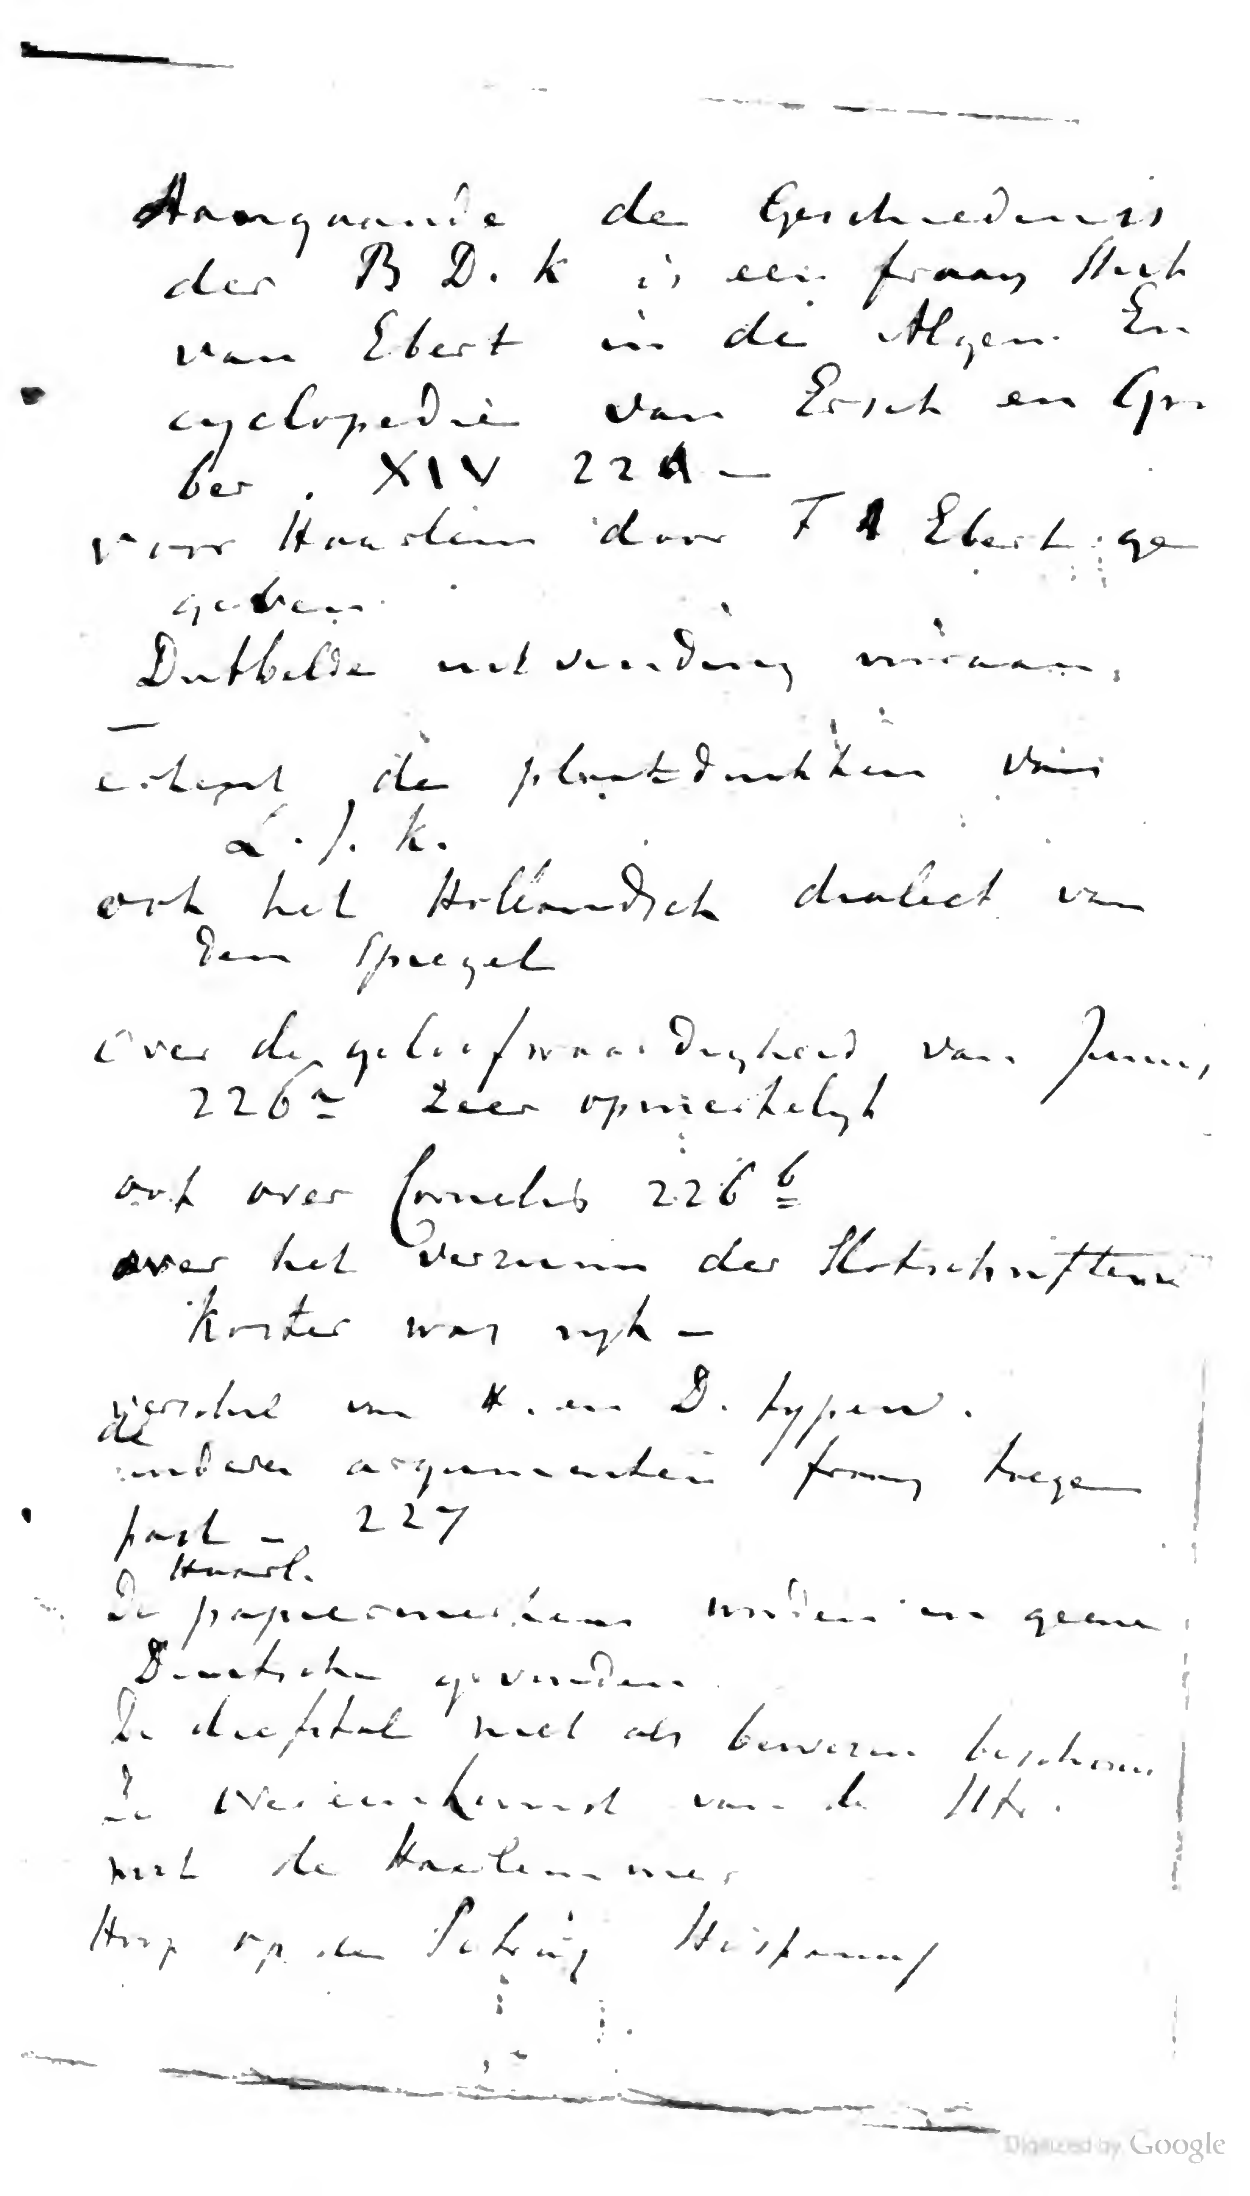 Aangaande de Geschiedenis
der B D. K is een fraay Stuk
van Ebert in de Algem. En
cyclopedie van Ersch en Gru
ber. XIV 22
voor Haarlem door F A Ebert ge
geven
Dubbelde uitvinding
erkent de plaatdrukken van
L. J. K.
ook het Hollandsch dialect van
den Spiegel
over de geloofwaardigheid van Junius
226a zeer opmerkelyk
ook over Cornelis 226 b
over het verzuim der Slotschriften
Koster was ryk —
verschil van H. en D. typen.
de
andere argumenten fraay
past — 227
Haarl.
De papiermerken worden in geene
Duitsche gevonden
De diefstal niet als bewezen beschouw
De overeenkomst van de
met de Haarlemmer
Hoop op den Petrus Hispanus
Digitized by Google